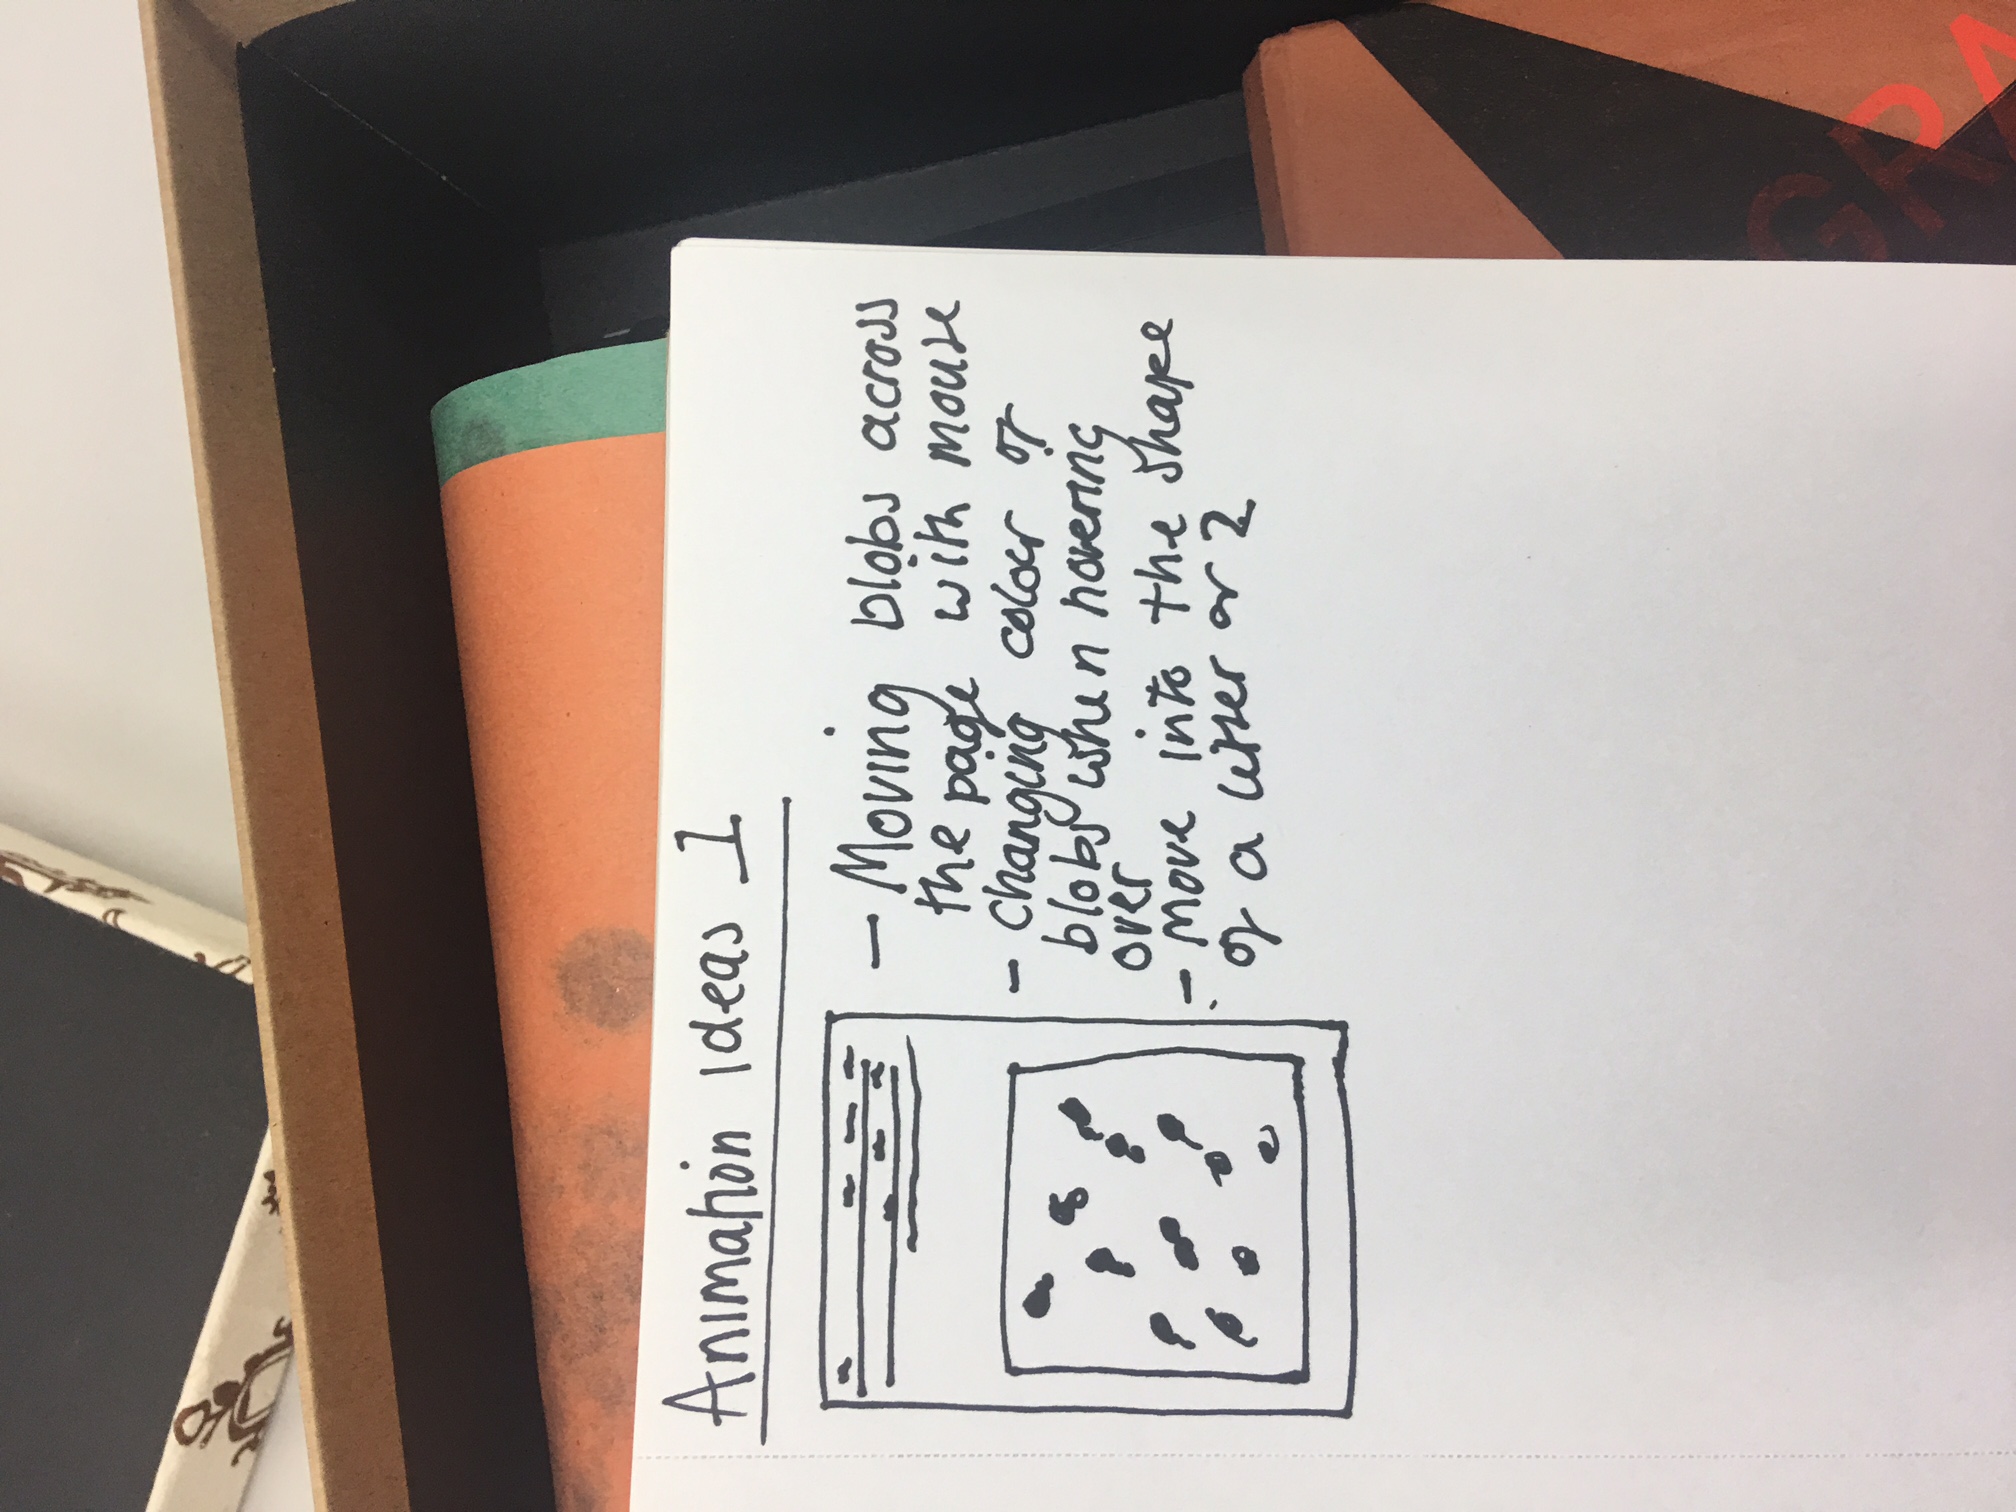 Animation ideas 1
- Moving blobs across
the page with mouse
- changing colour of
blobs when hovering
over
- move into the shape
of a letter or 2
GRA